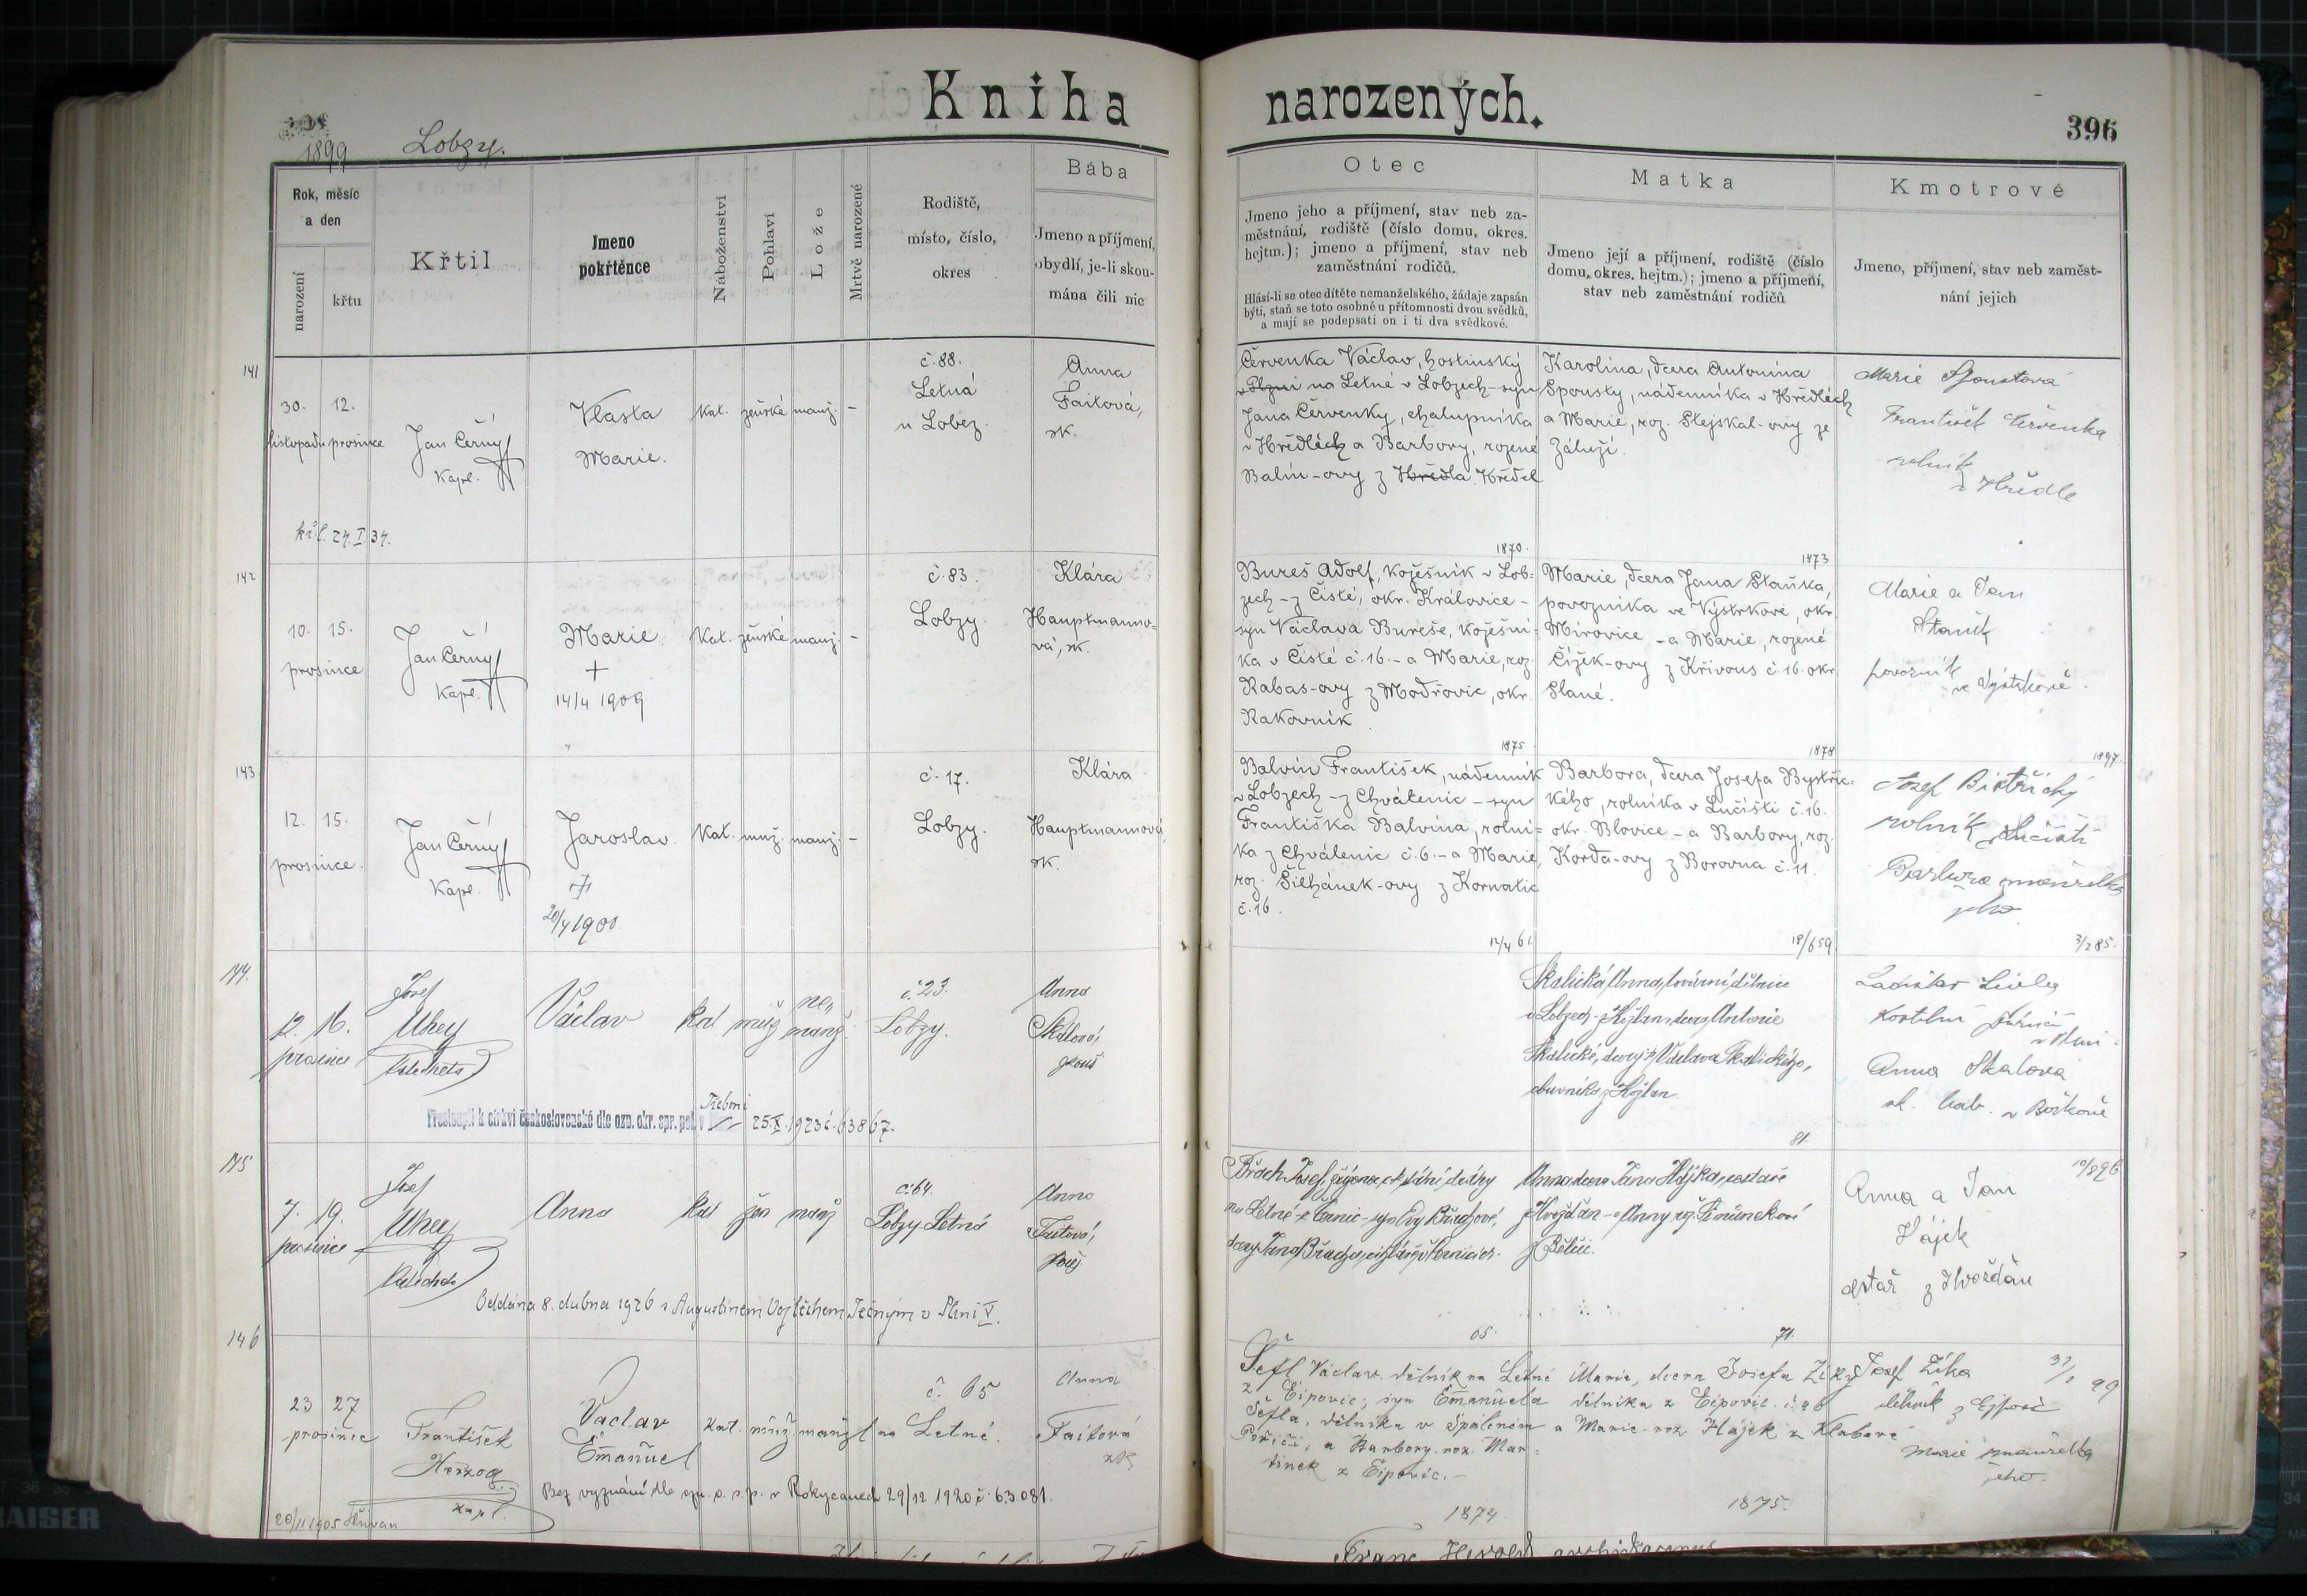 Kniha narozených.
396
1899 Lobzy.
Rok, měsíc
a den
narození
křtu
Křtil
Jmeno
pokřtěnce
Náboženství
Pohlaví
Lože
Mrtvě narozené
Rodiště,
místo, číslo,
okres
Bába
Jmeno a příjmení,
obydlí, je-li skou-
mána čili nic
Otec
Jmeno jeho a příjmení, stav neb za-
městnání, rodiště (číslo domu, okres.
hejtm.); jmeno a příjmení, stav neb
zaměstnání rodičů.
Hlásí-li se otec dítěte nemanželského, žádaje zapsán
býti, staň se toto osobně u přítomnosti dvou svědků,
a mají se podepsati on i ti dva svědkové.
Matka
Jmeno její a příjmení, rodiště (číslo
domu, okres. hejtm.); jmeno a příjmení,
stav neb zaměstnání rodičů
Kmotrové
Jmeno, příjmení, stav neb zaměst-
nání jejich
141
30. 12.
listopadu prosince
Jan Černý
Kapl.
Vlasta
Marie.
Kat. ženské manž. -
č. 88.
Letná
u Lobez.
Anna
Faitová,
zk.
Červenka Václav, hostinský
v Plzni na Letné v Lobzech - syn
Jana Červenky, chalupníka
v Hředlích a Barbory, rozené
Balín-ovy z Hředla. Hředel
Karolina, dcera Antonína
Spousty, nádenníka v Hředlích
a Marie, roz. Stejskal-ovy ze
Záluží.
Marie Spoustová
František Červenka
rolník
z Hředle
kř. l. 24. I. 34.
1870.
1873
142
10. 15.
prosince
Jan Černý
Kapl.
Marie.
+
14/4 1909
Kat. ženské manž. -
č. 83.
Lobzy.
Klára
Hauptmanno-
vá, zk.
Bureš Adolf, kožešník v Lob-
zech - z Čisté, okr. Kralovice -
syn Václava Bureše, kožešní-
ka v Čisté č. 16. - a Marie, roz.
Rabas-ovy z Modřovic, okr.
Rakovník
Marie, dcera Jana Staňka,
povozníka ve Výstrkově, okr.
Mirovice - a Marie, rozené
Čížek-ovy z Křivous č. 16. okr.
Slané.
Marie a Jan
Staněk
povozník
ve Výstrkově.
1875
1878
1897
143
12. 15.
prosince.
Jan Černý
Kapl.
Jaroslav.
20/4 1901
Kat. muž. manž. -
č. 17.
Lobzy.
Klára
Hauptmannová,
zk.
Balvín František, nádenník
v Lobzech - z Chválenic - syn
Františka Balvína, rolní-
ka z Chválenic č. 6. - a Marie,
roz. Šilhánek-ovy z Kornatic
č. 16.
Barbora, dcera Josefa Bystřic-
kého, rolníka v Lučišti č. 16.
okr. Blovice - a Barbory, roz.
Korda-ovy z Borovna č. 11.
Josef Bistřický
rolník z Lučiště
Barbora manželka
jeho
12/4 61.
18/6 59.
3/2 85.
144.
12. 16.
prosince
Josef
Uhey
katecheta
Václav
kat muž nemanž.
č. 23.
Lobzy.
Anna
Skálová,
zkouš
Skalická Anna, tovární dělnice
v Lobzech - z Kožlan, dcera Antonie
Skalické, dcery Václava Skalického,
obuvníka z Kožlan.
Anna Skalova
zk. bab. v Božkově
Přestoupil k církvi československé dle ozn. okr. spr. pol. v Třeboni 25. X. 1923 č. 63867.
81.
145
7. 19.
prosince
Josef
Uhey
Katecheta
Anna
kat žen manž
č. 64.
Lobzy Letná
Anna
Faitová,
zkouš
na Letné
Anna dcera Jana Hájka, cestáře
z Hvožďan - a Anny roz. Šimůnekové
z Bělčic.
10/8 96
Anna a Jan
Hájek
cestář z Hvožďan
Oddána 8. dubna 1926 s Augustinem Vojtěchem Tečným v Plzni V.
65.
71.
146
23 27
prosince
František
Herzog
kapl.
Václav
Emanuel
kat. muž manžel
č. 65
na Letné.
Anna
Faitová
zk.
Šefl Václav. dělník na Letné
z Ejpovic; syn Emanuela
Šefla, dělníka v Spáleném
Poříčí; a Barbory roz. Mar-
tínek z Ejpovic. -
Marie, dcera Josefa Ziky
dělníka z Ejpovic. č. 26
a Marie roz. Hájek z Klabavě
Josef Zika
dělník z Ejpovic
Marie manželka
jeho.
Bez vyznání dle ozn. o. s. p. v Rokycanech 29/12 1920 č. 63.081.
20/11 1905
1874
1875.